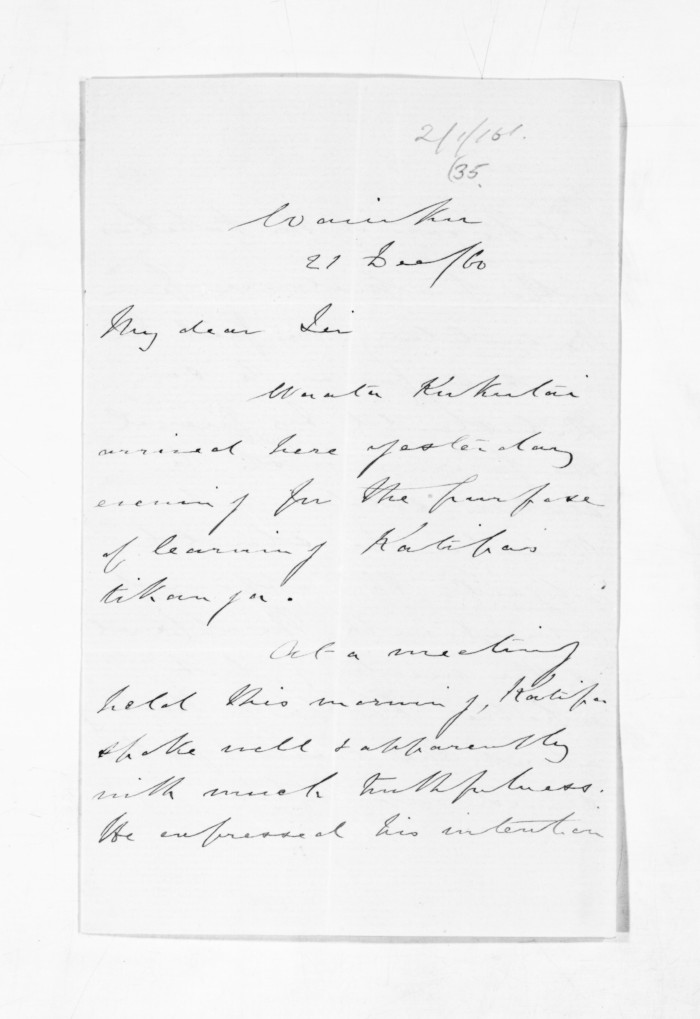 2/1/61.
(35.
Waiuku
21 Dec/60
My dear Sir
Waata Kukutai
arrived here yesterday
evening for the purpose
of learning Katipa's
tikanga.
At a meeting
held this morning, Katipa
spoke well & apparently
with much truthfulness.
He expressed his intention